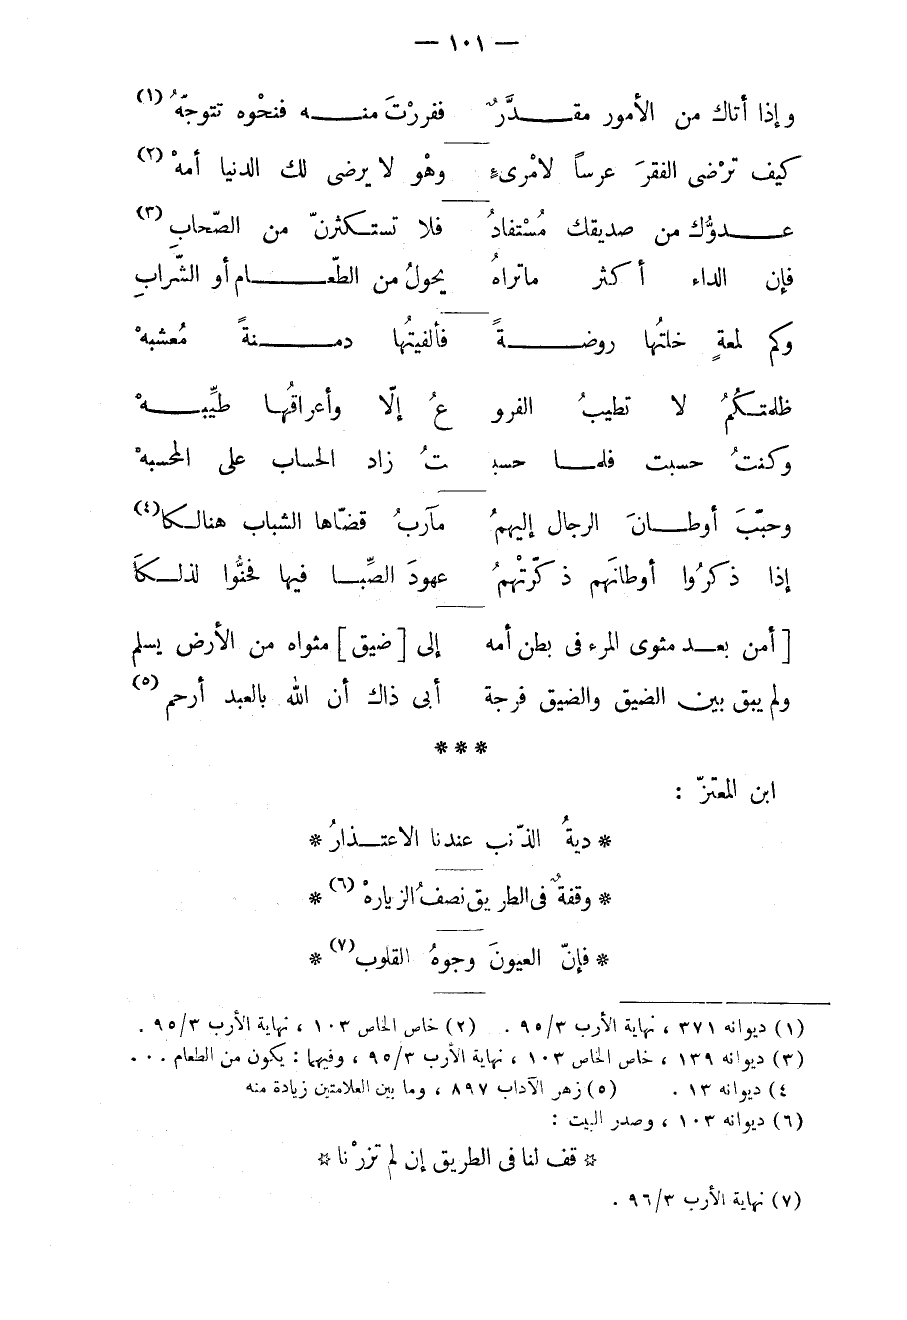 — ١٠١ —
وإذا أتاك من الأمور مقـدَّرٌ ففررْتَ منـه فنحْوه تتوجّهُ (١)
كيف ترْضى الفقرَ عرساً لامْرىءٍ وهْو لا يرضى لك الدنيا أمهْ (٢)
عـدوُّك من صديقك مُسْتفادُ فلا تستـكثرنّ من الصّحابِ (٣)
فإن الداء أكثر ماتراهُ يحولُ من الطّعـامِ أو الشّرابِ
وكم لمعةٍ خلتُها روضـةً فألفيتُها دمـنةً مُعشبهْ
ظلمتـكُمُ لا تطيبُ الفرو عُ إلّا وأعراقُهـا طيِّبـهْ
وكنتُ حسبت فلمـا حسبـ تُ زاد الحساب على المحسبهْ
وحبّبَ أوطـانَ الرجال إليهمُ مآربُ قضّاها الشباب هنالـكا (٤)
إذا ذكرُوا أوطانَهم ذكّرتْهمُ عهودَ الصِّبـا فيها فحنُّوا لذلـكَا
[ أمن بعـد مثوى المرء فى بطن أمه إلى [ ضيق ] مثواه من الأرض يسلم
ولم يبق بين الضيق والضيق فرجة أبى ذاك أن الله بالعبد أرحم (٥)
* * *
ابن المعتزّ :
* ديةُ الذّنب عندنا الاعتـذارُ *
* وقفةٌ فى الطريق نصفُ الزيارهْ (٦) *
* فإنّ العيونَ وجوهُ القلوب (٧) *
(١) ديوانه ٣٧١ ، نهاية الأرب ٩٥/٣ . (٢) خاص الخاص ١٠٣ ، نهاية الأرب ٩٥/٣ .
(٣) ديوانه ١٣٩ ، خاص الخاص ١٠٣ ، نهاية الأرب ٩٥/٣ ، وفيهما : يكون من الطعام . . .
٤) ديوانه ١٣ . (٥) زهر الآداب ٨٩٧ ، وما بين العلامتين زيادة منه
(٦) ديوانه ١٠٣ ، وصدر البيت :
* قف لنا فى الطريق إن لم تزرْنا *
(٧) نهاية الأرب ٩٦/٣ .